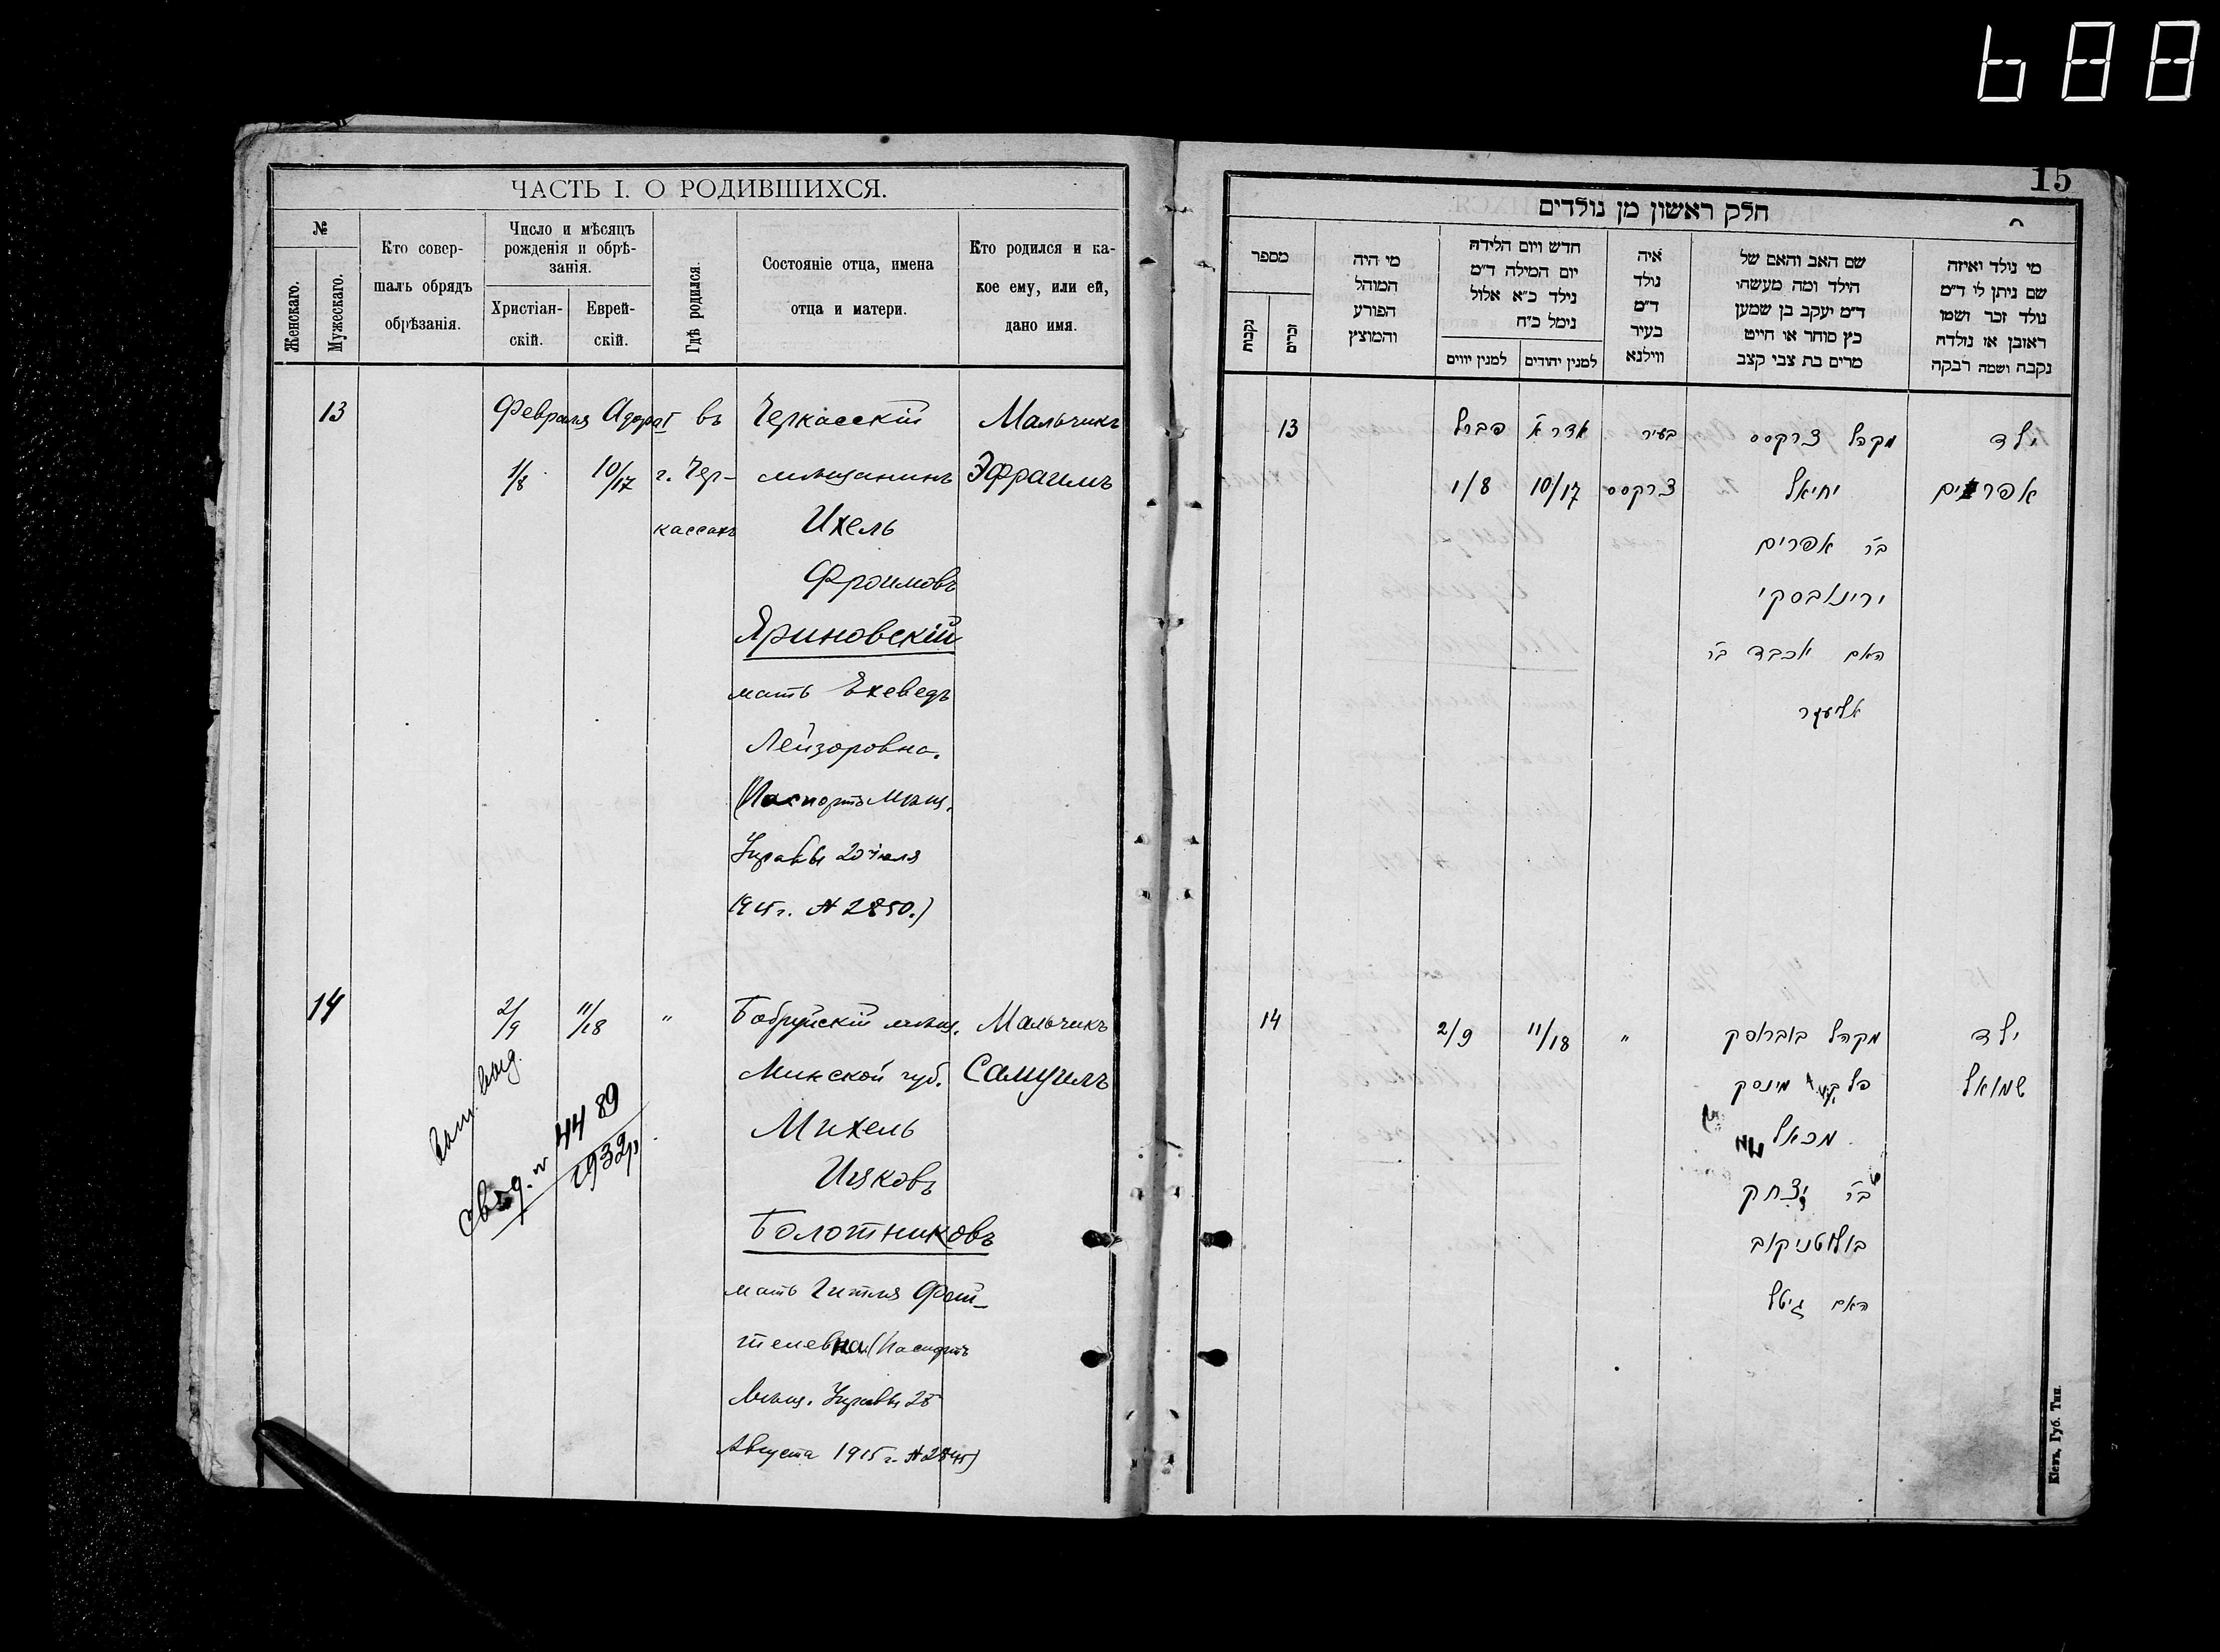 688
ЧАСТЬ I. О РОДИВШИХСЯ.
№
Женскаго.
Мужескаго.
Кто совер-
шалъ обрядъ
обрѣзанія.
Число и мѣсяцъ
рожденія и обрѣ-
занія.
Христіан-
скій.
Еврей-
скій.
Гдѣ родился.
Состояніе отца, имена
отца и матери.
Кто родился и ка-
кое ему, или ей,
дано имя.
13 Февраля Адара I въ Черкасскій Мальчикъ
1/8 10/17 г. Чер- мѣщанинъ Эфраимъ
кассахъ Ихель
Фроимовъ
Яриновскій
мать Ехеведъ
Лейзоровна.
(Паспортъ Мѣщ.
Управы 20 Іюля
1915 г. № 2850.)
14 2/9 11/18 " Бобруйскій мѣщ. Мальчикъ
Минской губ. Самуилъ
Михель
Ицковъ
Болотниковъ
мать Гитля Фай-
телевна (Паспортъ
Мѣщ. Управы 25
Августа 1915 г. №
свѣд. № 4489
1932р
15
חלק ראשון מן נולדים
מספר
נקבות
זכרים
מי היה
המוהל
הפורע
והמוצץ
חדש ויום הלידה
יום המילה ד״מ
נילד כ״א אלול
נימל כ״ח
למנין יווים
למנין יהודים
איה
נולד
ד״מ
בעיר
ווילנא
שם האב והאם של
הילד ומה מעשהו
ד״מ יעקב בן שמען
כץ סוחר או חייט
מרים בת צבי קצב
מי נולד ואיזה
שם ניתן לו ד״מ
נולד זכר ושמו
ראובן או נולדה
נקבה ושמה רבקה
13 פברל אדר א בעיר מקהל צרקסס ילד
1/8 10/17 צרקסס יחיאל אפרים
בר אפרים
ירינאבסקי
האם יוכבד בר
אליעזר
14 2/9 11/18 " מקהל בוברוסק ילד
פלך מינסק שמואל
מכאל
בר יצחק
בולוטניקוב
האם גיטל
Кіевъ, Губ. Тип.